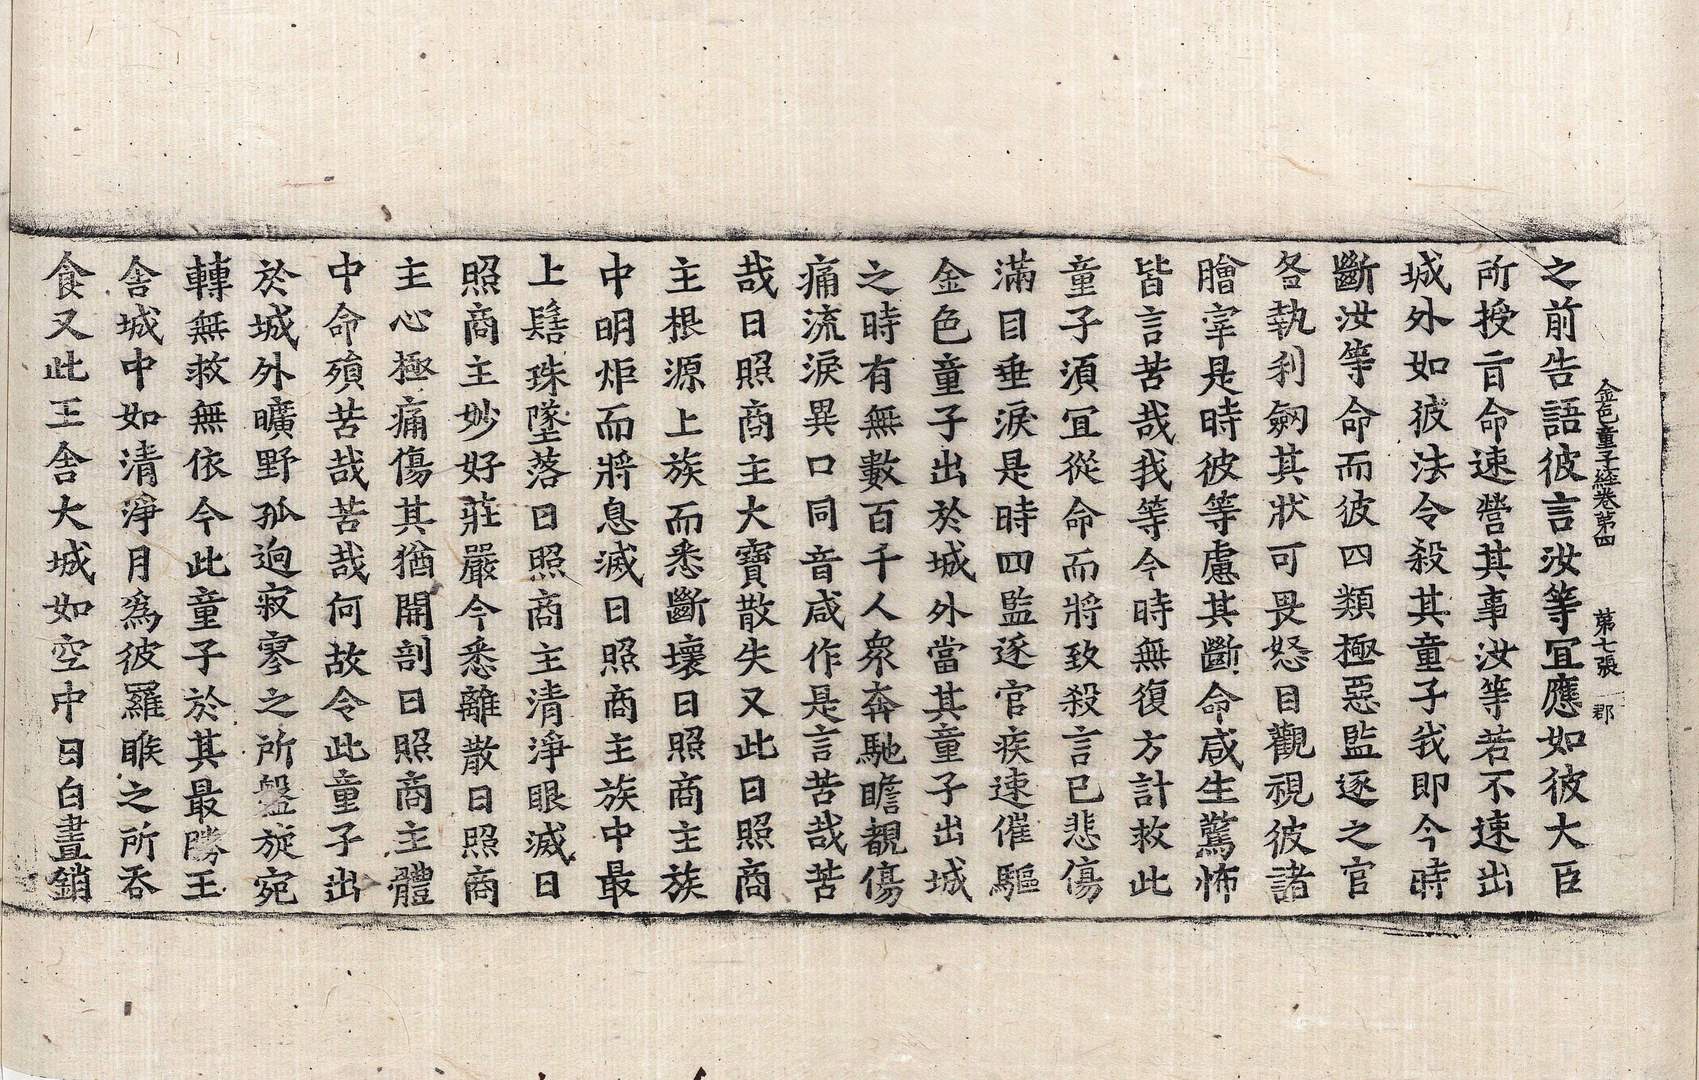 金色童子經卷第四 第七張 郡
之前告語彼言汝等宜應如彼大臣
所授旨命速營其事汝等若不速出
城外如彼法令殺其童子我即今時
斷汝等命而彼四類極惡監逐之官
各執利劒其狀可畏怒目觀視彼諸
膾宰是時彼等慮其斷命咸生驚怖
皆言苦哉我等今時無復方計救此
童子須宜從命而將致殺言已悲傷
滿目垂淚是時四監逐官疾速催驅
金色童子出於城外當其童子出城
之時有無數百千人衆奔馳瞻覩傷
痛流淚異口同音咸作是言苦哉苦
哉日照商主大寶散失又此日照商
主根源上族而悉斷壞日照商主族
中明炬而將息滅日照商主族中最
上髻珠墜落日照商主清淨眼滅日
照商主妙好莊嚴今悉離散日照商
主心極痛傷其猶開剖日照商主體
中命殞苦哉苦哉何故令此童子出
於城外曠野孤逈寂寥之所盤旋宛
轉無救無依今此童子於其最勝王
舍城中如清淨月爲彼羅睺之所吞
食又此王舍大城如空中日白晝銷